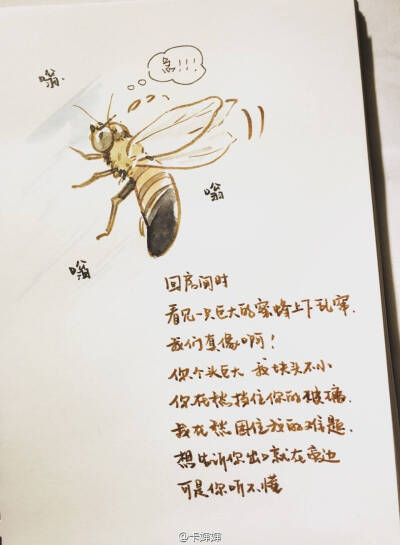 嗡.
急!!!
嗡
嗡
回房间时
看见一只巨大的蜜蜂上下乱窜.
我们真像啊!
你个头巨大 我块头不小
你在愁挡住你的玻璃.
我在愁困住我的难题.
想告诉你出口就在旁边
可是你听不懂
@卡婶婶